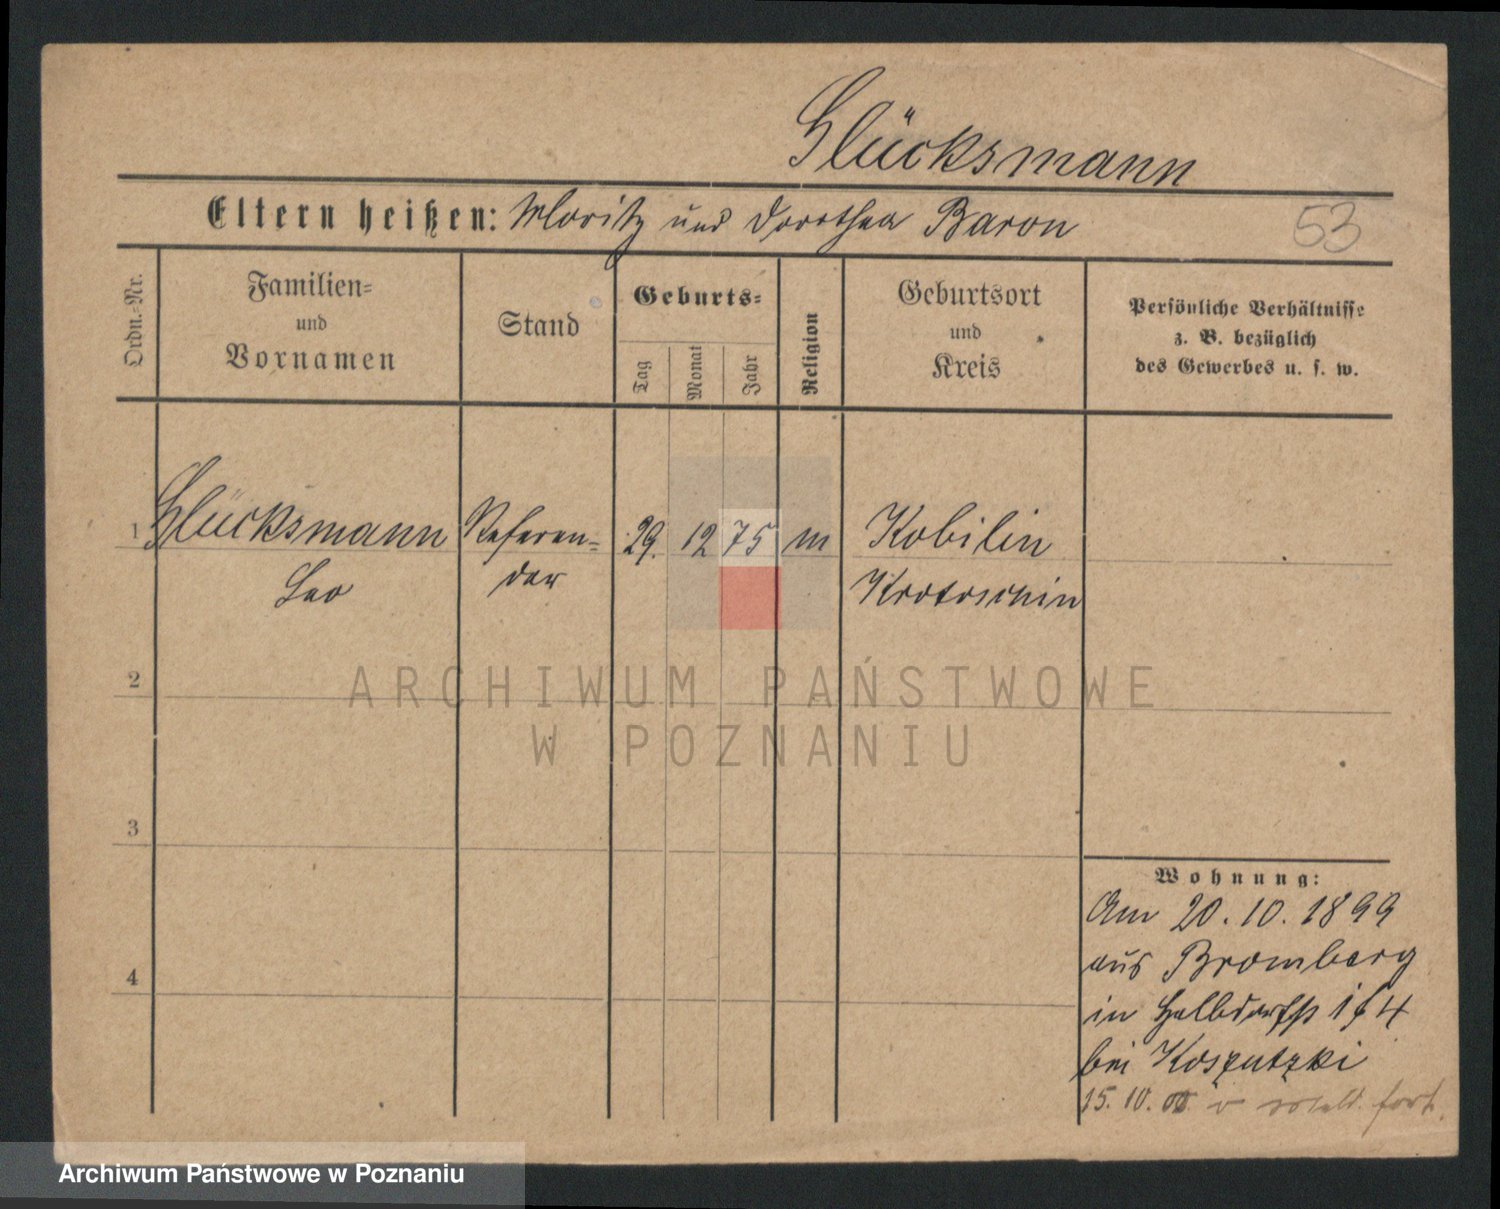 Glücksmann
Eltern heißen: Moritz und Dorothea Baron
53
Ordn.=Nr.
Familien=
und
Vornamen
Stand
Geburts=
Tag
Monat
Jahr
Religion
Geburtsort
und
Kreis
Persönliche Verhältnisse
z. B. bezüglich
des Gewerbes u. s. w.
1 Glücksmann Referen= 29. 12 75 m Kobilin
Leo dar Krotoschin
2
ARCHIWUM PAŃSTWOWE
W POZNANIU
3
4
Wohnung:
Am 20.10.1899
aus Bromberg
in Halbdorfst
bei Koszutzki
15.10.00 fort.
Archiwum Państwowe w Poznaniu